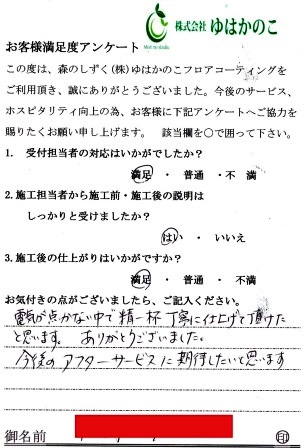 株式会社 ゆはかのこ
お客様満足度アンケート
この度は、森のしずく(株)ゆはかのこフロアコーティングを
ご利用頂き、誠にありがとうございました。今後のサービス、
ホスピタリティ向上の為、お客様に下記アンケートへご協力を
賜りたくお願い申し上げます。 該当欄を〇で囲って下さい。
1. 受付担当者の対応はいかがでしたか?
満足 ・ 普通 ・不 満
2.施工担当者から施工前・施工後の説明は
しっかりと受けましたか?
はい ・ いいえ
3.施工後の仕上がりはいかがですか?
満足 ・ 普通 ・ 不満
お気付きの点がございましたら、ご記入ください。
電気が点かない中で精一杯丁寧に仕上げて頂けた
と思います。 ありがとうございました。
今後のアフターサービスに期待したいと思います
御名前 ㊞